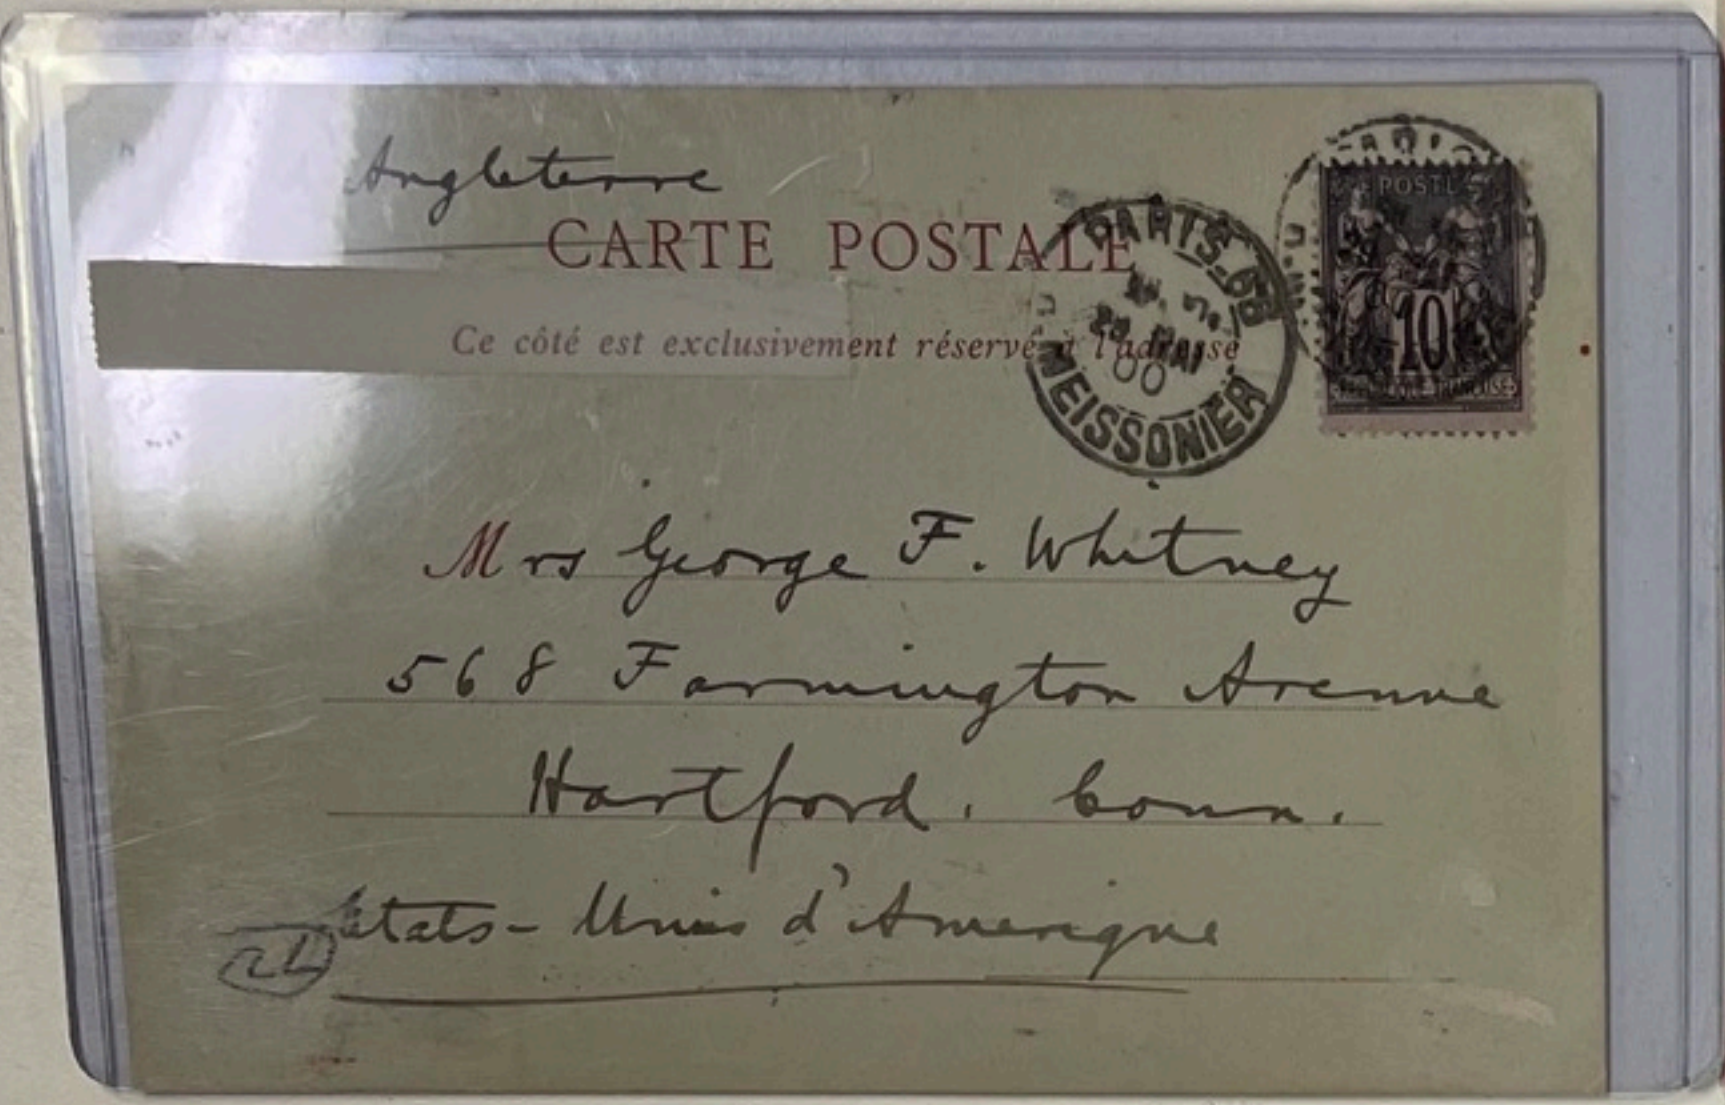 Angleterre
CARTE POSTALE
Ce côté est exclusivement réservé à l'adresse
PARIS_68
MAI
00
MEISSONIER
POSTE
10
REPUBLIQUE FRANÇAISE
Mrs George F. Whitney
568 Farmington Avenue
Hartford. Conn.
Etats-Unis d'Amerique